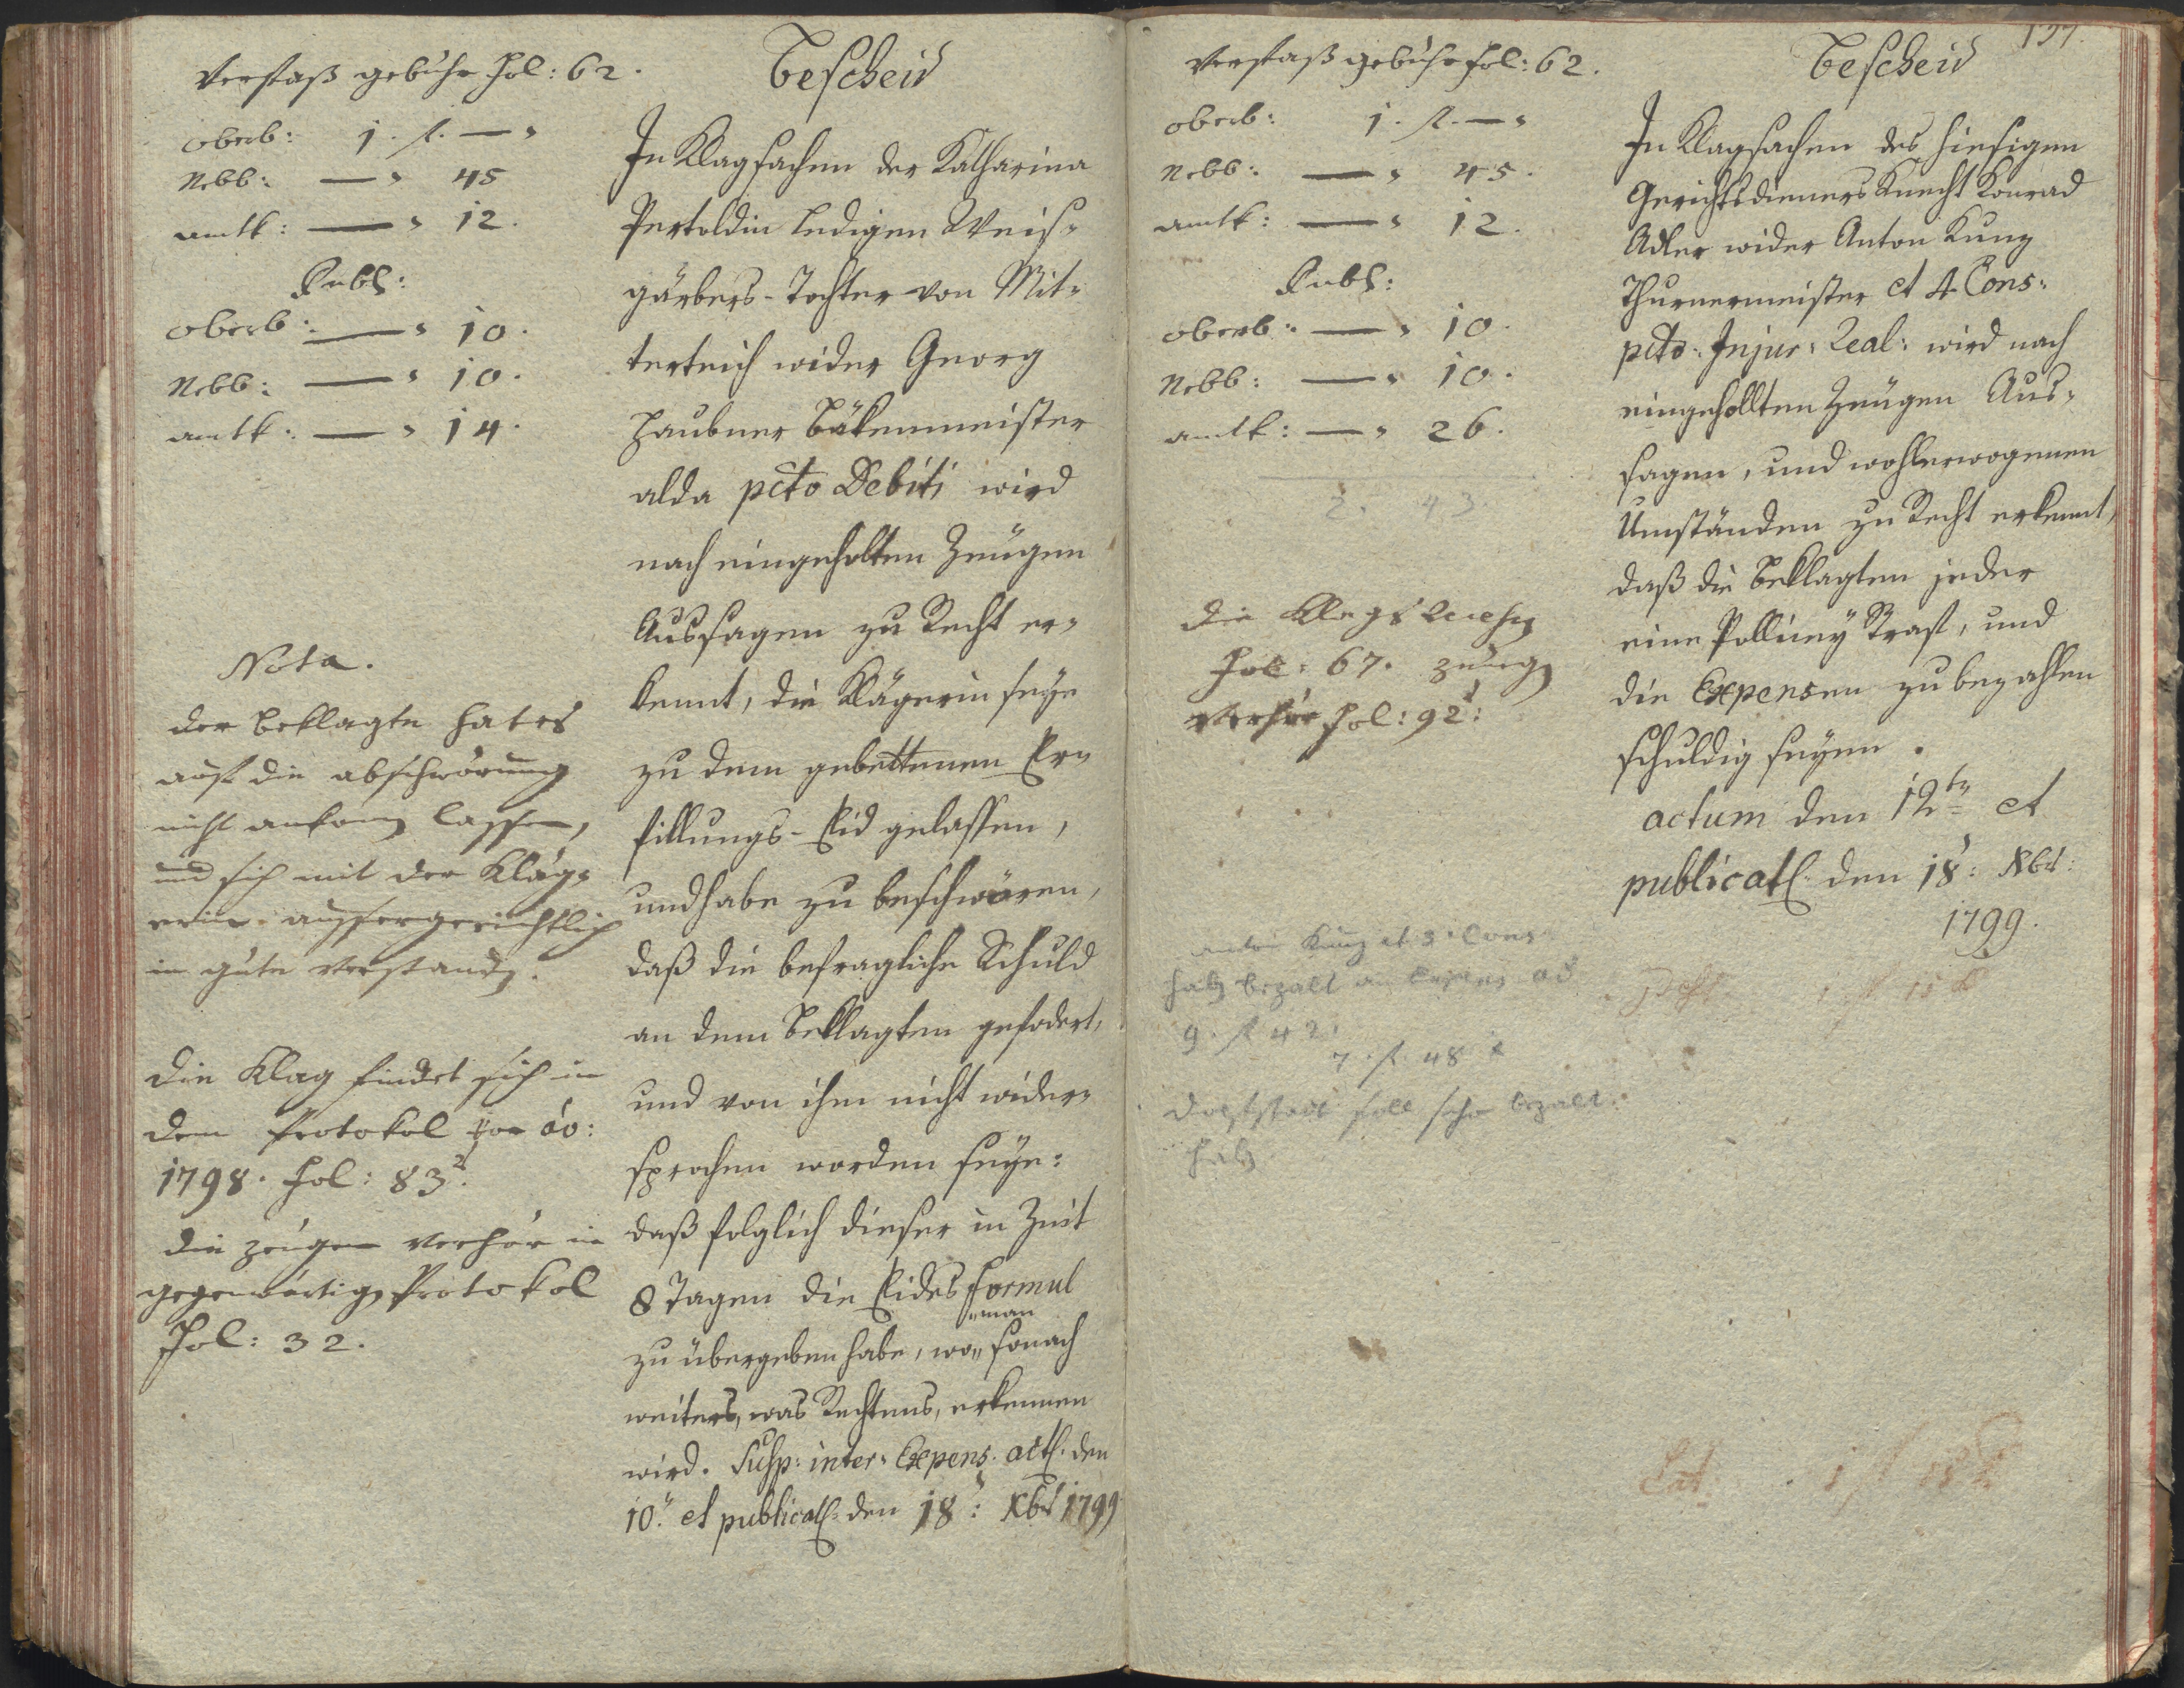 Verfaß gebühr fol: 62.
oberb: 1. f. — "
Nebb: — " 45
amtk: — " 12.
Publ:
oberb: — " 10.
Nebb: — " 10.
amtk: — " 14.
Nota.
der beklagte hat es
auf die abschwörung
nicht ankomen lassen,
und sich mit der Kläg=
erin aussergerichtlich
in güte verstanden.
die Klag findet sich in
dem Protokol pro ao:
1798. fol: 83
die zeugen verhör in
gegenwärtigen Protokol
fol: 32.
Bescheid
In Klagsachen der Katharina
Pertoldin ledigen Weis=
gärbers-Tochter von Mit=
terteich wider Georg
Haubner Bäkenmeister
alda pcto Debiti wird
nach eingeholten Zeugen
Aussagen zu Recht er=
kennt, die Klägerin seye
zu dem gebettenen Er=
fillungs-Eid gelassen,
und habe zu beschwören,
daß die befragliche Schuld
an dem Beklagten gefodert,
und von ihm nicht wider=
sprochen worden seye:
daß folglich dieser in Zeit
8 Tagen die Eides formul
"man
zu übergeben habe, wo" sonach
weiters, was Rechtens, erkennen
wird. Susp: inter: Expens. actl. den
10. et publicatl: den 18: Xbr 1799
Verfaß gebühr fol: 62.
oberb: 1. f. — "
Nebb: — " 45.
amtk: — " 12.
Publ:
oberb: — " 10.
Nebb: — " 10.
amtk: — " 26.
2. 43.
die Klags
fol: 67. zeugen
Verhör fol: 92:
Kunz et 3 Cons
haben bezalt an
9. f 42.
7. f. 48 x
soll schon bezalt
haben
Bescheid
In Klagsachen des hiesigen
Gerichtsdieners Knecht Konrad
Adler wider Anton Kunz
Thurnermeister et 4 Cons:
pcto: Injur: Real: wird nach
eingehollten Zeugen Aus=
sagen, und wohlerwogenen
Umständen zu Recht erkennt,
daß die Beklagten jeder
eine Pollizey Straf, und
die Expensen zu bezahlen
schuldig seyen.
actum den 12ten et
publicatl: den 18: Xbr:
1799.